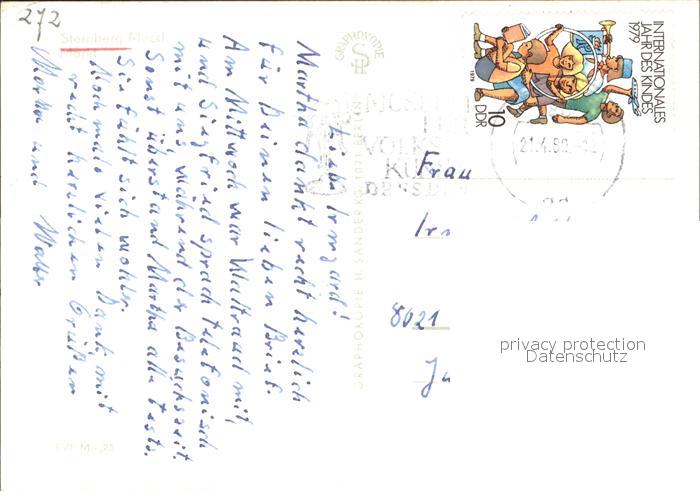 272
Sternberg Meckl.
Liebe Irmgard!
Martha dankt recht herzlich
für Deinen lieben Brief.
Am Mittwoch war Waltraud mit,
und Siegfried sprach telefonisch
mit uns während der Besuchszeit.
Sonst überstand Martha alle Tests.
Sie fühlt sich wohler.
Nochmals vielen Dank, mit
recht herzlichen Grüßen
Martha und Walter
EVP M -,25
GRAPHOKOPIE
GRAPHOKOPIE H. SANDER KG, 1071 BERLIN
INTERNATIONALES
JAHR DES KINDES
1979
10
DDR
MUSEUM
FÜR
VOLKS
KUNST
DRESDEN
21.4.80
Frau
8021
privacy protection
Datenschutz